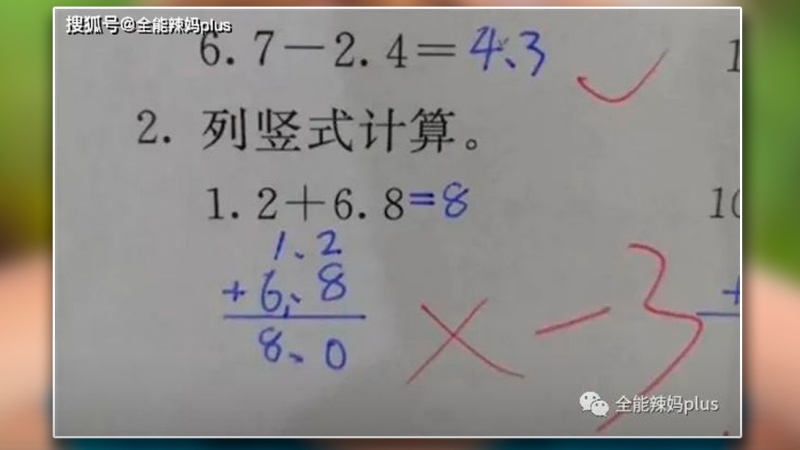 搜狐号@全能辣妈plus
6.7－2.4＝4.3
1
2. 列竖式计算。
1.2＋6.8=8
10
1.2
+6.8
+
8.0
×－3
全能辣妈plus